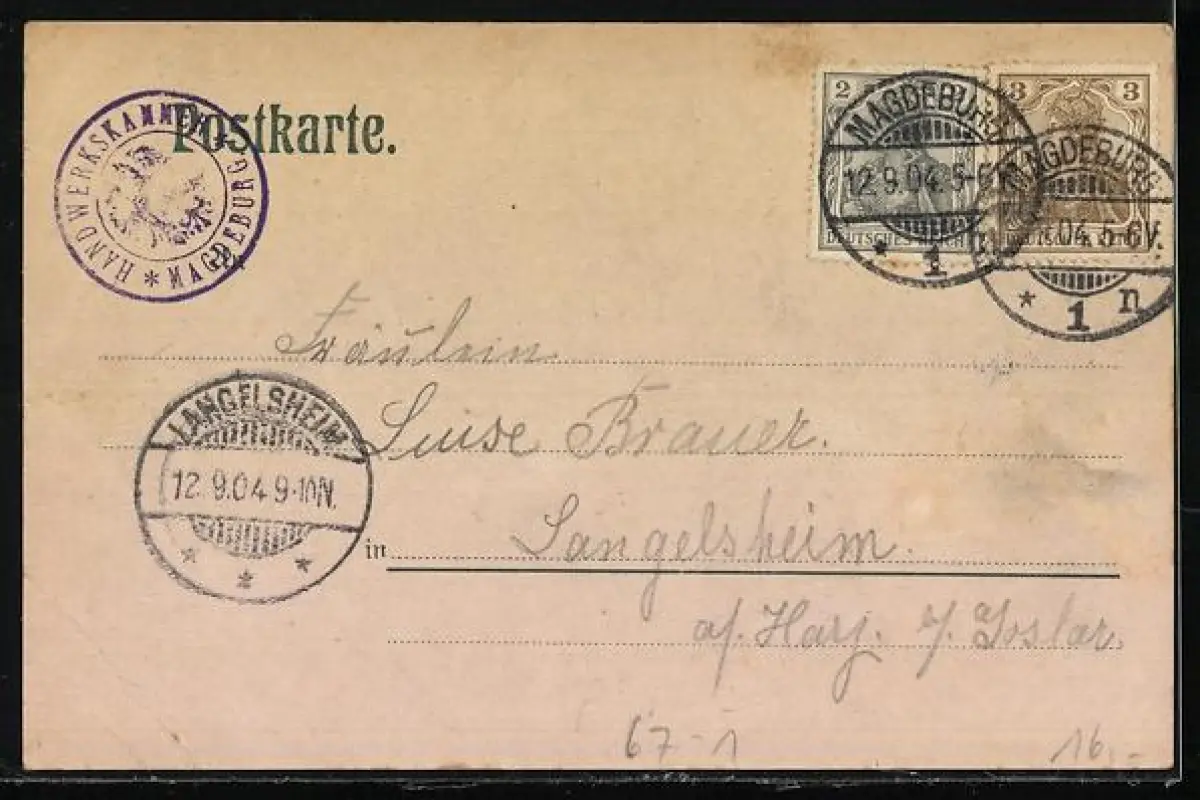 Postkarte.
HANDWERKSKAMMER * MAGDEBURG.
2
3 3
DEUTSCHES REICH
MAGDEBURG
12.9.04.5-6
* 1 n
MAGDEBURG
04.5-6V.
* 1 n
Fräulein
LANGELSHEIM
12.9.04 9-10N.
* * *
Luise Brauer.
in Langelsheim.
a/. Harz. b/. Goslar.
67-1
16.-